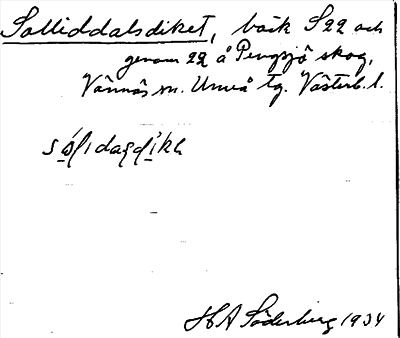 Salliddalsdiket, bäck S 22 och
genom 22 å Pengsjö skog,
Vännäs sn. Umeå tg. Västerb. l.
H A Söderberg 1934